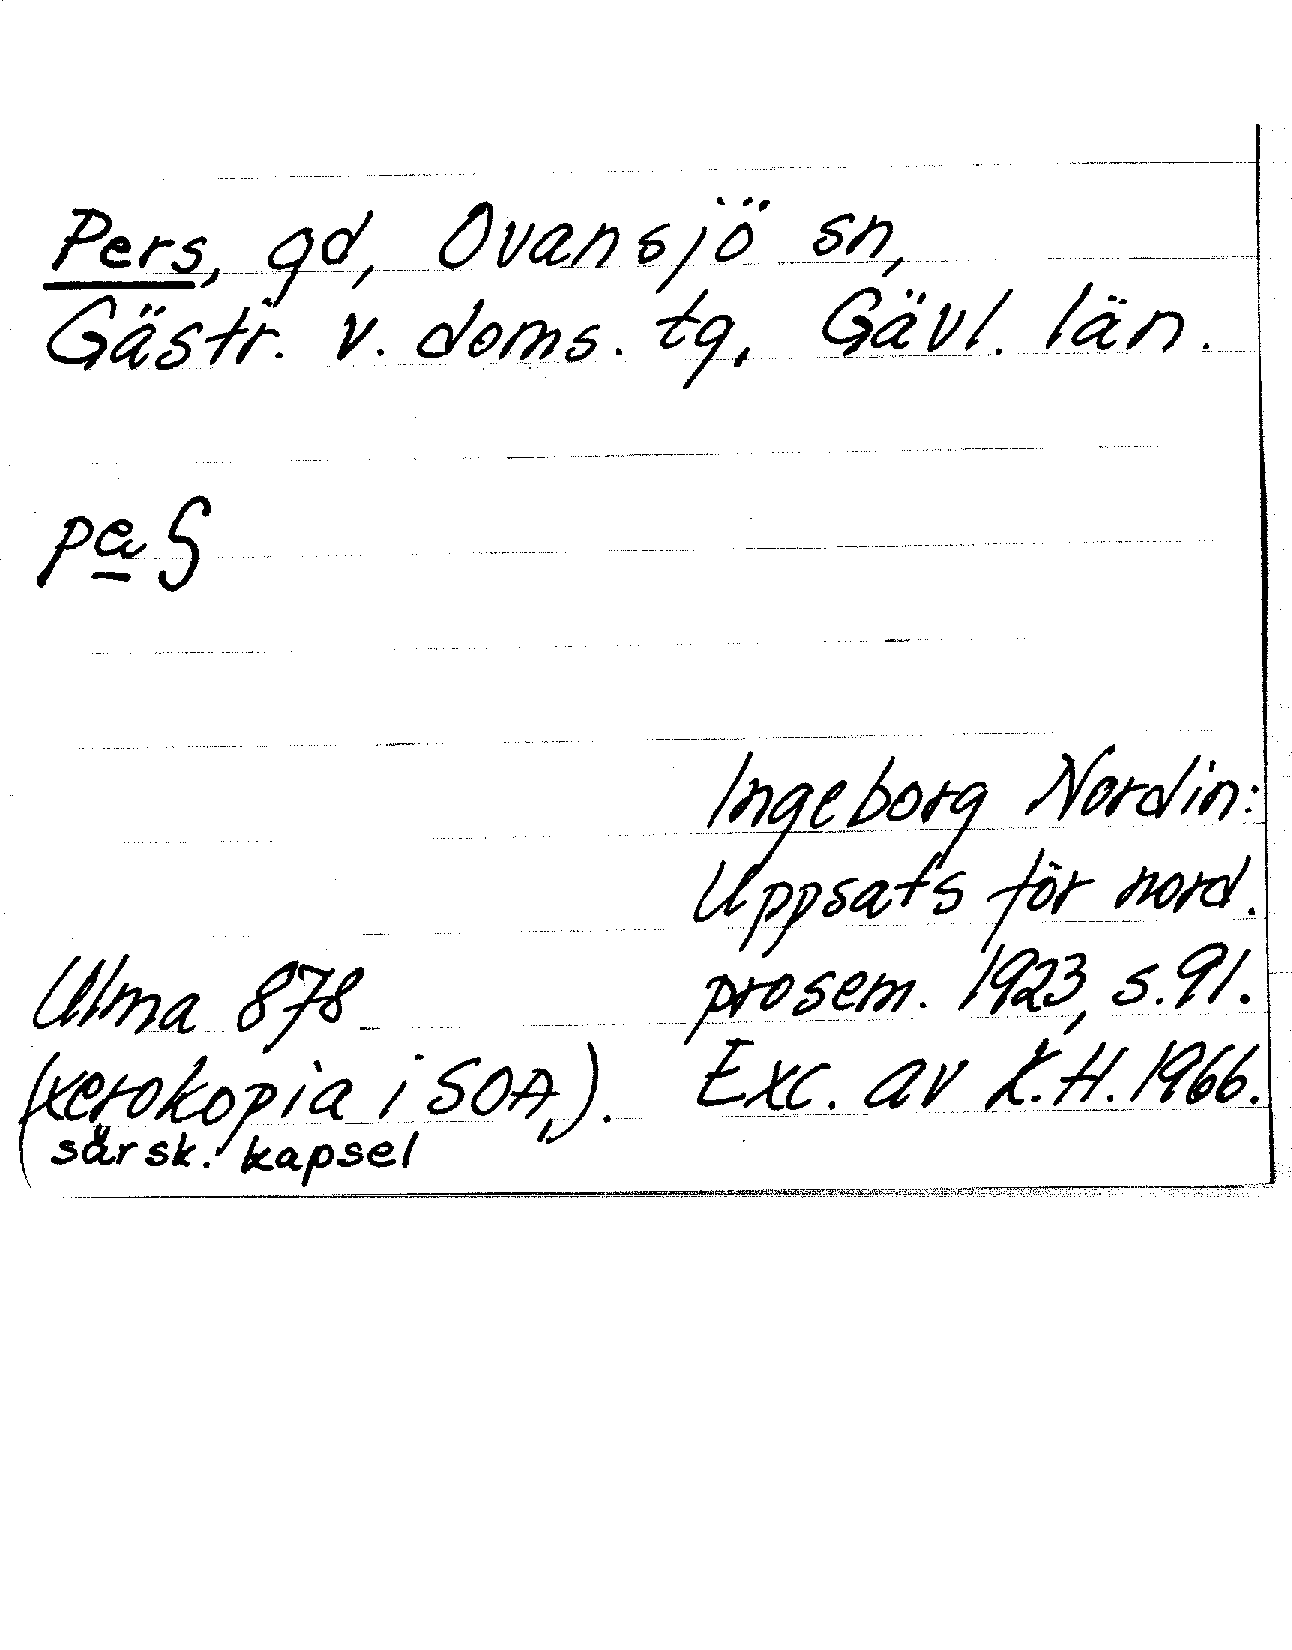 Pers, gd, Ovansjö sn,
Gästr. v. doms. tg, Gävl. län.
Ingeborg Nordin:
Uppsats för nord.
prosem. 1923, s. 91.
Exc. av K.H. 1966.
Ulma 878
(xerokopia i SOA,).
särsk. kapsel